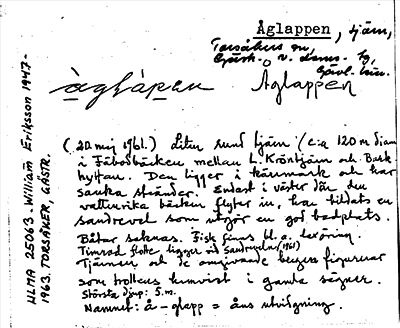 Åglappen, tjärn,
Torsåkers sn,
Gästr. o. v. doms. hg,
Gävl. län.
àglápen Åglappen
(20 maj 1961.) Liten rund tjärn/c:a 120 m diam
i Fäbodbäcken mellan L. Kröntjärn och Bark-
hyttan. Den ligger i kärrmark och har
sanka stränder. Endast i väster där den
vattenrika bäcken flyter in, har bildats en
sandrevel som utgör en god badplats.
Båtar saknas. Fisk finns bl.a. laxöring.
Timrad flotte ligger vid Sandrevlar (1961)
Tjärnen och de omgivande bergen figurerar
som trollens hemvist i gamla sägner.
Största djup: 5 m.
Namnet: å - glapp = åns utvidgning.
ULMA 25063. William Eriksson 1947-
1963. TORSÅKER, GÄSTR.